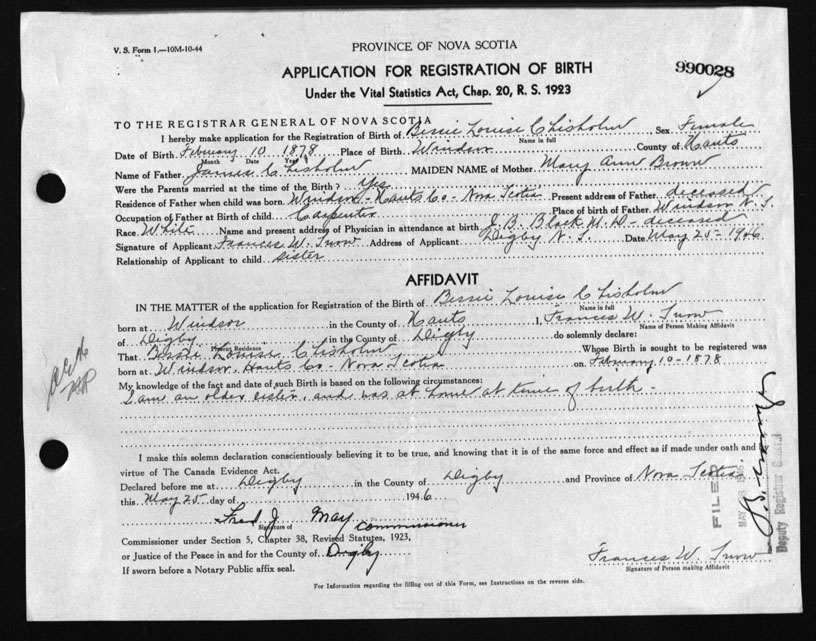 V. S. Form 1.—10M-10-44
PROVINCE OF NOVA SCOTIA
990028
APPLICATION FOR REGISTRATION OF BIRTH
Under the Vital Statistics Act, Chap. 20, R. S. 1923
TO THE REGISTRAR GENERAL OF NOVA SCOTIA
I hereby make application for the Registration of Birth of Bessie Louise Chisholm Sex Female
Name in full
Date of Birth February 10 1878 Place of Birth Windsor County of Hants
Month Date Year
Name of Father James C. Chisholm MAIDEN NAME of Mother Mary Ann Brown
Were the Parents married at the time of the Birth? Yes
Residence of Father when child was born Windsor - Hants Co - Nova Scotia Present address of Father deceased
Occupation of Father at Birth of child Carpenter Place of birth of Father Windsor N.S.
Race White Name and present address of Physician in attendance at birth J. B. Black M.D - deceased
Signature of Applicant Frances W. Snow Address of Applicant Digby N.S. Date May 25 - 1946
Relationship of Applicant to child sister
AFFIDAVIT
IN THE MATTER of the application for Registration of the Birth of Bessie Louise Chisholm
Name in full
born at Windsor in the County of Hants I, Frances W. Snow
Name of Person Making Affidavit
of Digby in the County of Digby do solemnly declare:
Present Residence
That Bessie Louise Chisholm Whose Birth is sought to be registered was
born at Windsor, Hants Co - Nova Scotia on February 10 - 1878
My knowledge of the fact and date of such Birth is based on the following circumstances:
I am an older sister, and was at home at time of birth -
I make this solemn declaration conscientiously believing it to be true, and knowing that it is of the same force and effect as if made under oath and by
virtue of The Canada Evidence Act.
Declared before me at Digby in the County of Digby and Province of Nova Scotia
this May 25 day of 1946
Fred J. May Commissioner
Signature of
Commissioner under Section 5, Chapter 38, Revised Statutes, 1923,
or Justice of the Peace in and for the County of Digby
If sworn before a Notary Public affix seal.
Frances W. Snow
Signature of Person making Affidavit
For Information regarding the filling out of this Form, see Instructions on the reverse side.
FILED
MAY 28 1946
Deputy Registrar General